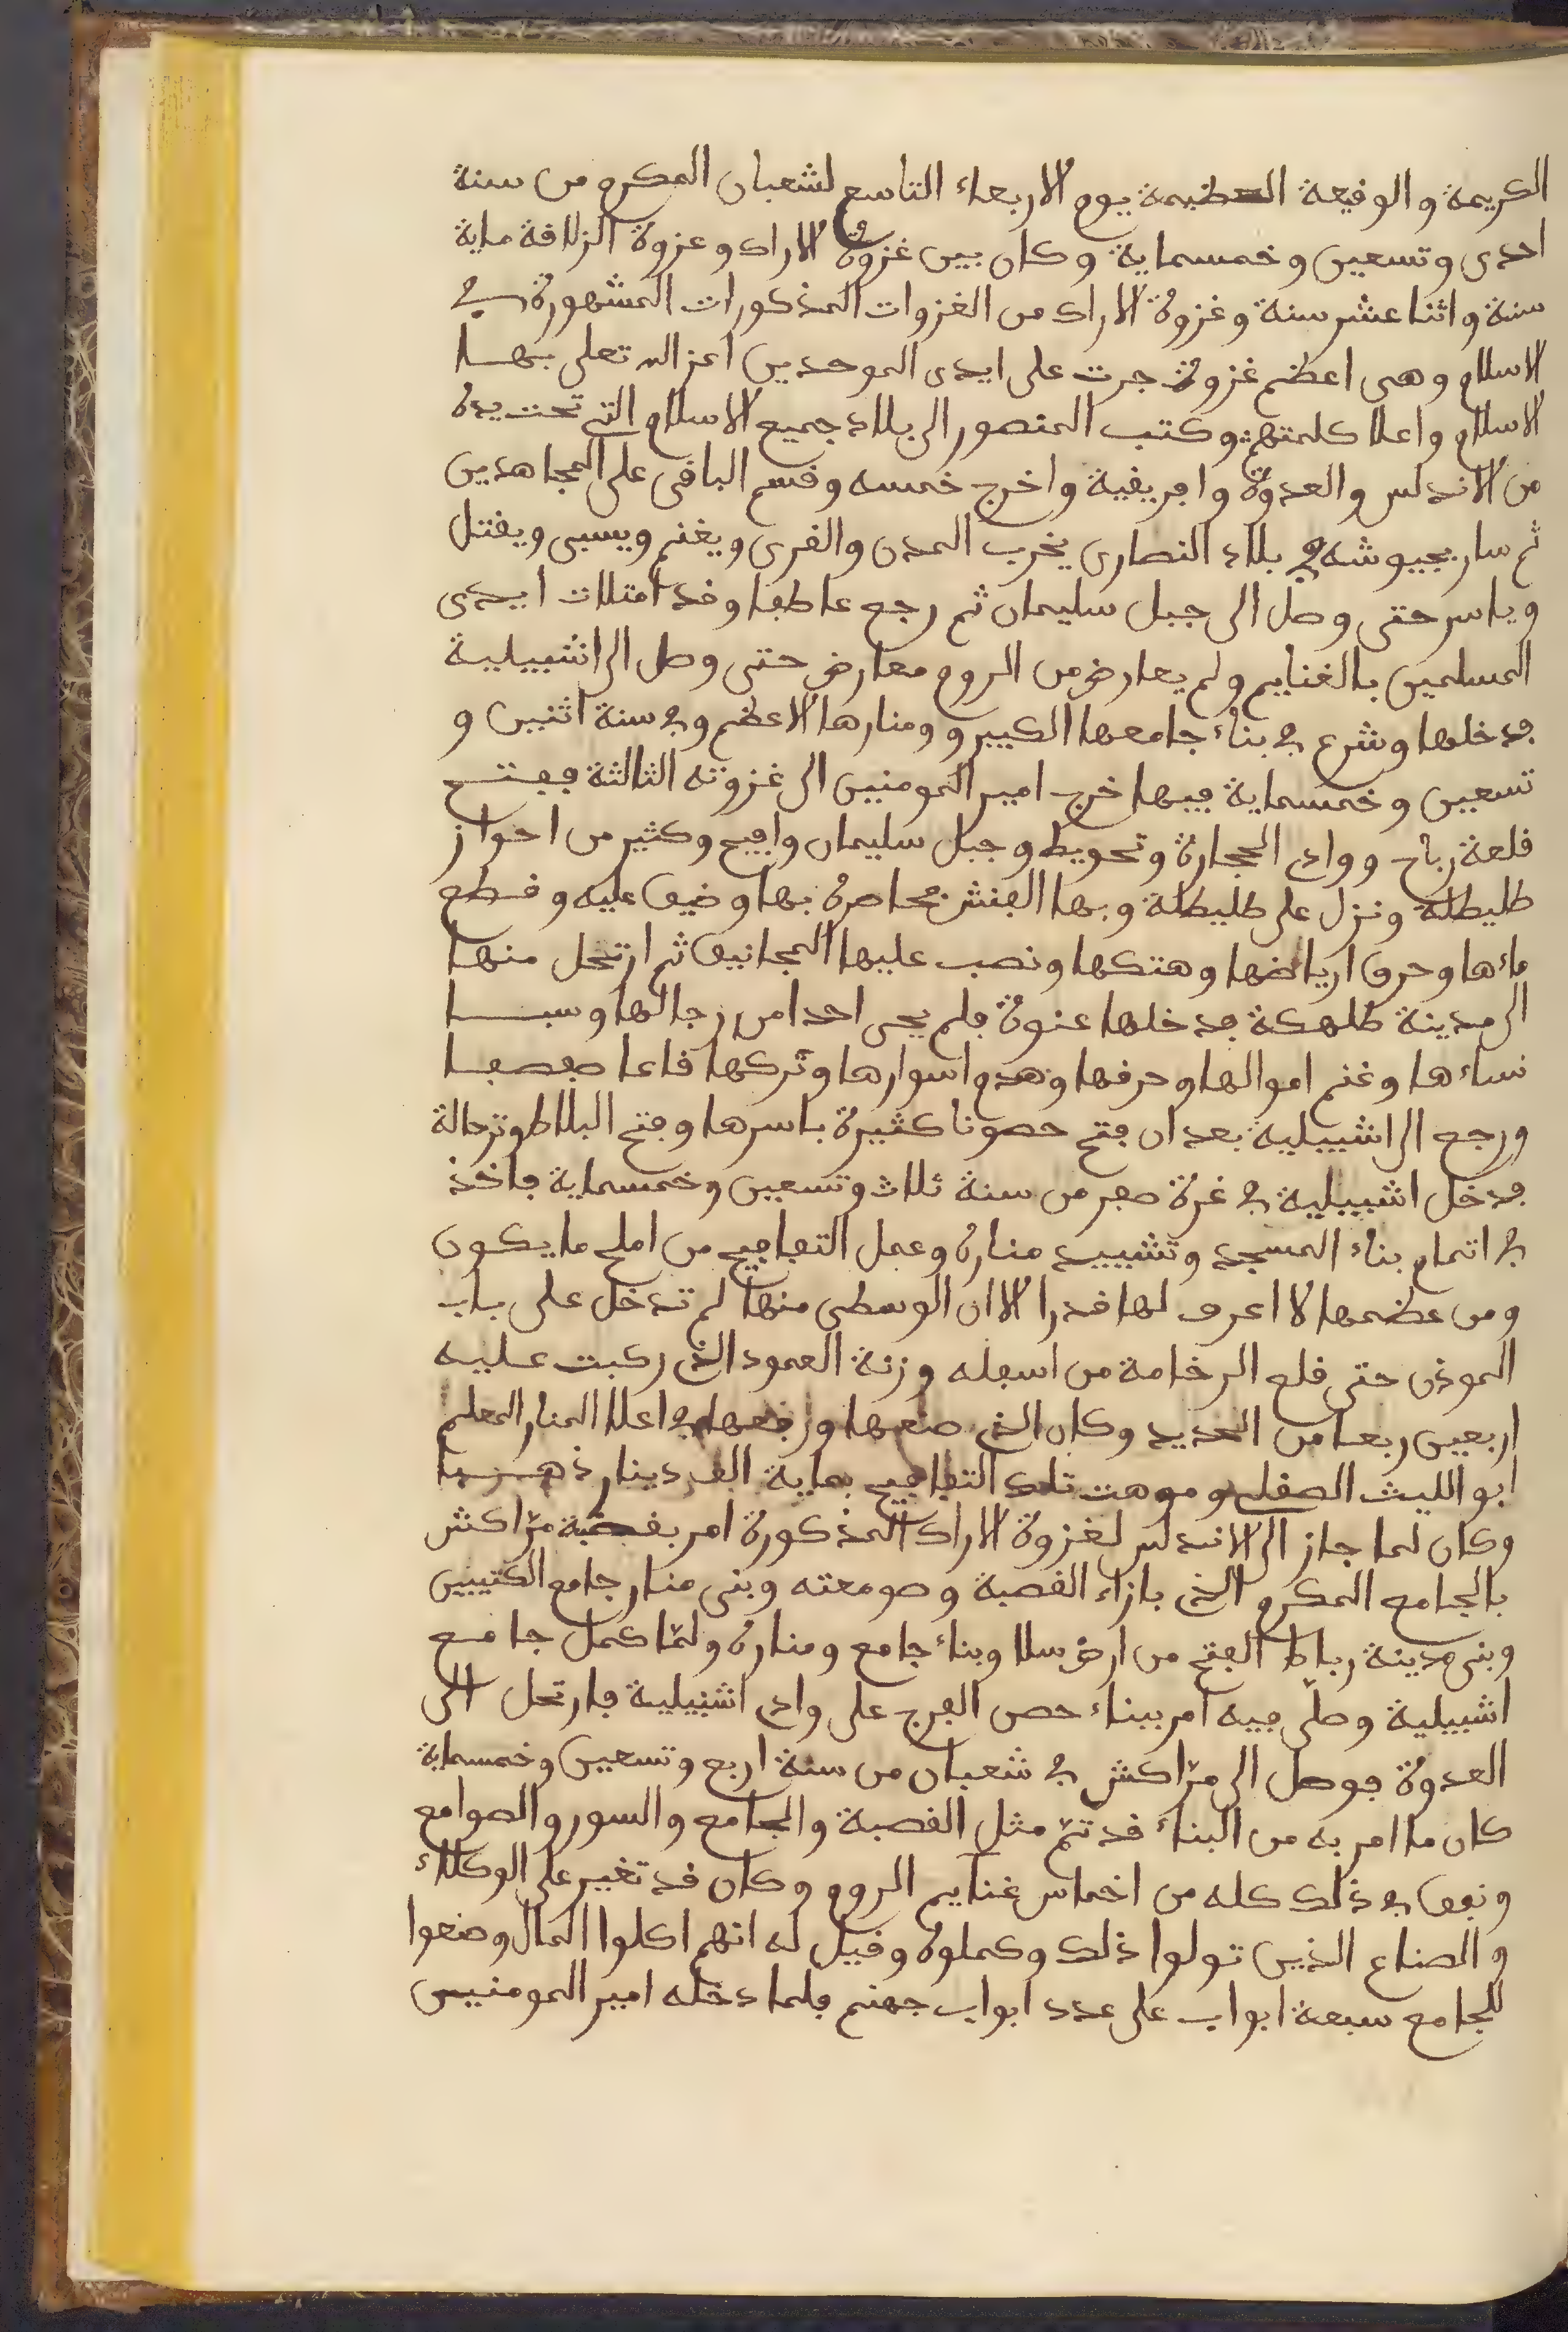 الكريمة والوقيعة العظيمة يوم الاربعاء التاسع لشعبان المكرم من سنة
احدى وتسعين وخمسماية وكان بين غزوة الاراك وعزوة الزلاقة ماية
سنة واثنا عشر سنة وغزوة الاراك من الغزوات المذكورات المشهورة في
الاسلام وهى اعظم غزوة جرت على ايدى الموحدين اعز الله تعلى بها
الاسلام واعلا كلمتهم وكتب المنصور الى بلاد جميع الاسلام التى تحت يده
من الاندلس والعدوة وافريقية واخرج خمسه وقسم الباقى على المجاهدين
ثم سار بجيوشه في بلاد النصارى يخرب المدن والقرى ويغنم ويسبى ويقتل
وياسر حتى وصل الى جبل سليمان ثم رجع عاطفا وقد امتلات ايدى
المسلمين بالغنايم ولم يعارض من الروم معارض حتى وصل الى اشبيلية
فدخلها وشرع في بناء جامعها الكبير و ومنارها الاعظم وفي سنة اثنين و
تسعين وخمسماية فيها خرج امير المومنين الى غزوته الثالثة ففتح
قلعة رباح ووادى الحجارة وتحويط وجبل سليمان وافيح وكثير من احواز
طليطلة ونزل على طليطلة وبها الفنش فحاصره بها وضيق عليه وقطع
ماءها وحرق ارياضها وهتكها ونصب عليها المجانيق ثم ارتحل منها
الى مدينة طلمكة فدخلها عنوة فلم يحى احدا من رجالها وسبا
نساءها وغنم اموالها وحرقها وهدم اسوارها وتركها قاعا صفصفا
ورجع الى اشبيلية بعد ان فتح حصونا كثيرة باسرها وفتح البلاط وترجالة
فدخل اشبيلية في غرة صفر من سنة ثلاث وتسعين وخمسماية فاخذ
في اتمام بناء المسجد وتشييد مناره وعمل التفافيح من املح ما يكون
ومن عظمها لا اعرف لها قدرا الا ان الوسطى منها لم تدخل على باب
الموذن حتى قلع الرخامة من اسفله وزنة العمود الذى ركبت عليه
اربعين ربعا من الحديد وكان الذى صنعها ورفعها في اعلا المنار المعلم
ابو الليث الصقلى وموهت تلك التفافيح بماية الف دينار ذهبا
وكان لما جاز الى الاندلس لغزوة الاراك المذكورة امر بقصبة مرّاكش
بالجامع المكرم الذى بازاء القصبة وصومعته وبنى منار جامع الكتبيين
وبنى مدينة رباط الفتح من ارض سلا وبناء جامع ومناره ولمّا كمل جامع
اشبيلية وصلّى فيه امر ببناء حصن الفرج على وادى اشبيلية فارتحل الى
العدوة فوصل الى مرّاكش في شعبان من سنة اربع وتسعين وخمسماية
كان ما امر به من البناء قد تمّ مثل القصبة والجامع والسور والصوامع
ونفق في ذلك كله من اخماس غنايم الروم وكان قد تغير على الوكلاء
والصناع الذين تولوا ذلك وكملوه وقيل له انهم اكلوا المال وصنعوا
للجامع سبعة ابواب على عدد ابواب جهنم فلما دخله امير المومنين